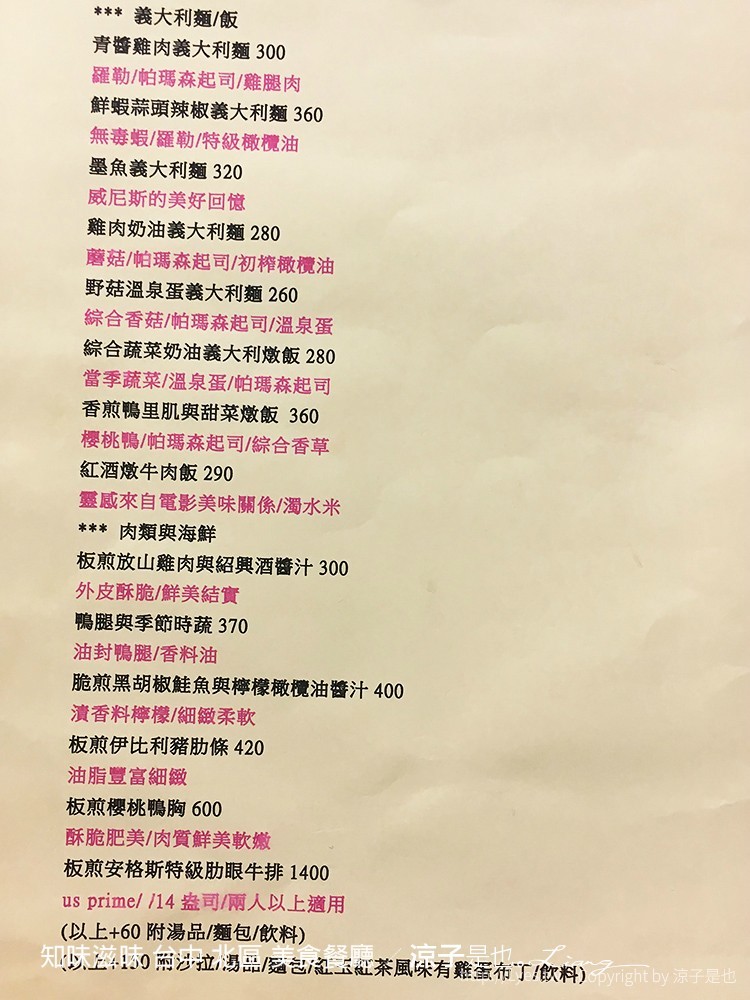 *** 義大利麵/飯
青醬雞肉義大利麵 300
羅勒/帕瑪森起司/雞腿肉
鮮蝦蒜頭辣椒義大利麵 360
無毒蝦/羅勒/特級橄欖油
墨魚義大利麵 320
威尼斯的美好回憶
雞肉奶油義大利麵 280
蘑菇/帕瑪森起司/初榨橄欖油
野菇溫泉蛋義大利麵 260
綜合香菇/帕瑪森起司/溫泉蛋
綜合蔬菜奶油義大利燉飯 280
當季蔬菜/溫泉蛋/帕瑪森起司
香煎鴨里肌與甜菜燉飯 360
櫻桃鴨/帕瑪森起司/綜合香草
紅酒燉牛肉飯 290
靈感來自電影美味關係/濁水米
*** 肉類與海鮮
板煎放山雞肉與紹興酒醬汁 300
外皮酥脆/鮮美結實
鴨腿與季節時蔬 370
油封鴨腿/香料油
脆煎黑胡椒鮭魚與檸檬橄欖油醬汁 400
漬香料檸檬/細緻柔軟
板煎伊比利豬肋條 420
油脂豐富細緻
板煎櫻桃鴨胸 600
酥脆肥美/肉質鮮美軟嫩
板煎安格斯特級肋眼牛排 1400
us prime/ /14 盎司/兩人以上適用
(以上+60 附湯品/麵包/飲料)
知味滋味 台中 北區 美食餐廳 / 涼子是也
(以上+130 附沙拉/湯品/麵包/紅玉紅茶風味有雞蛋布丁/飲料)
copyright by 涼子是也